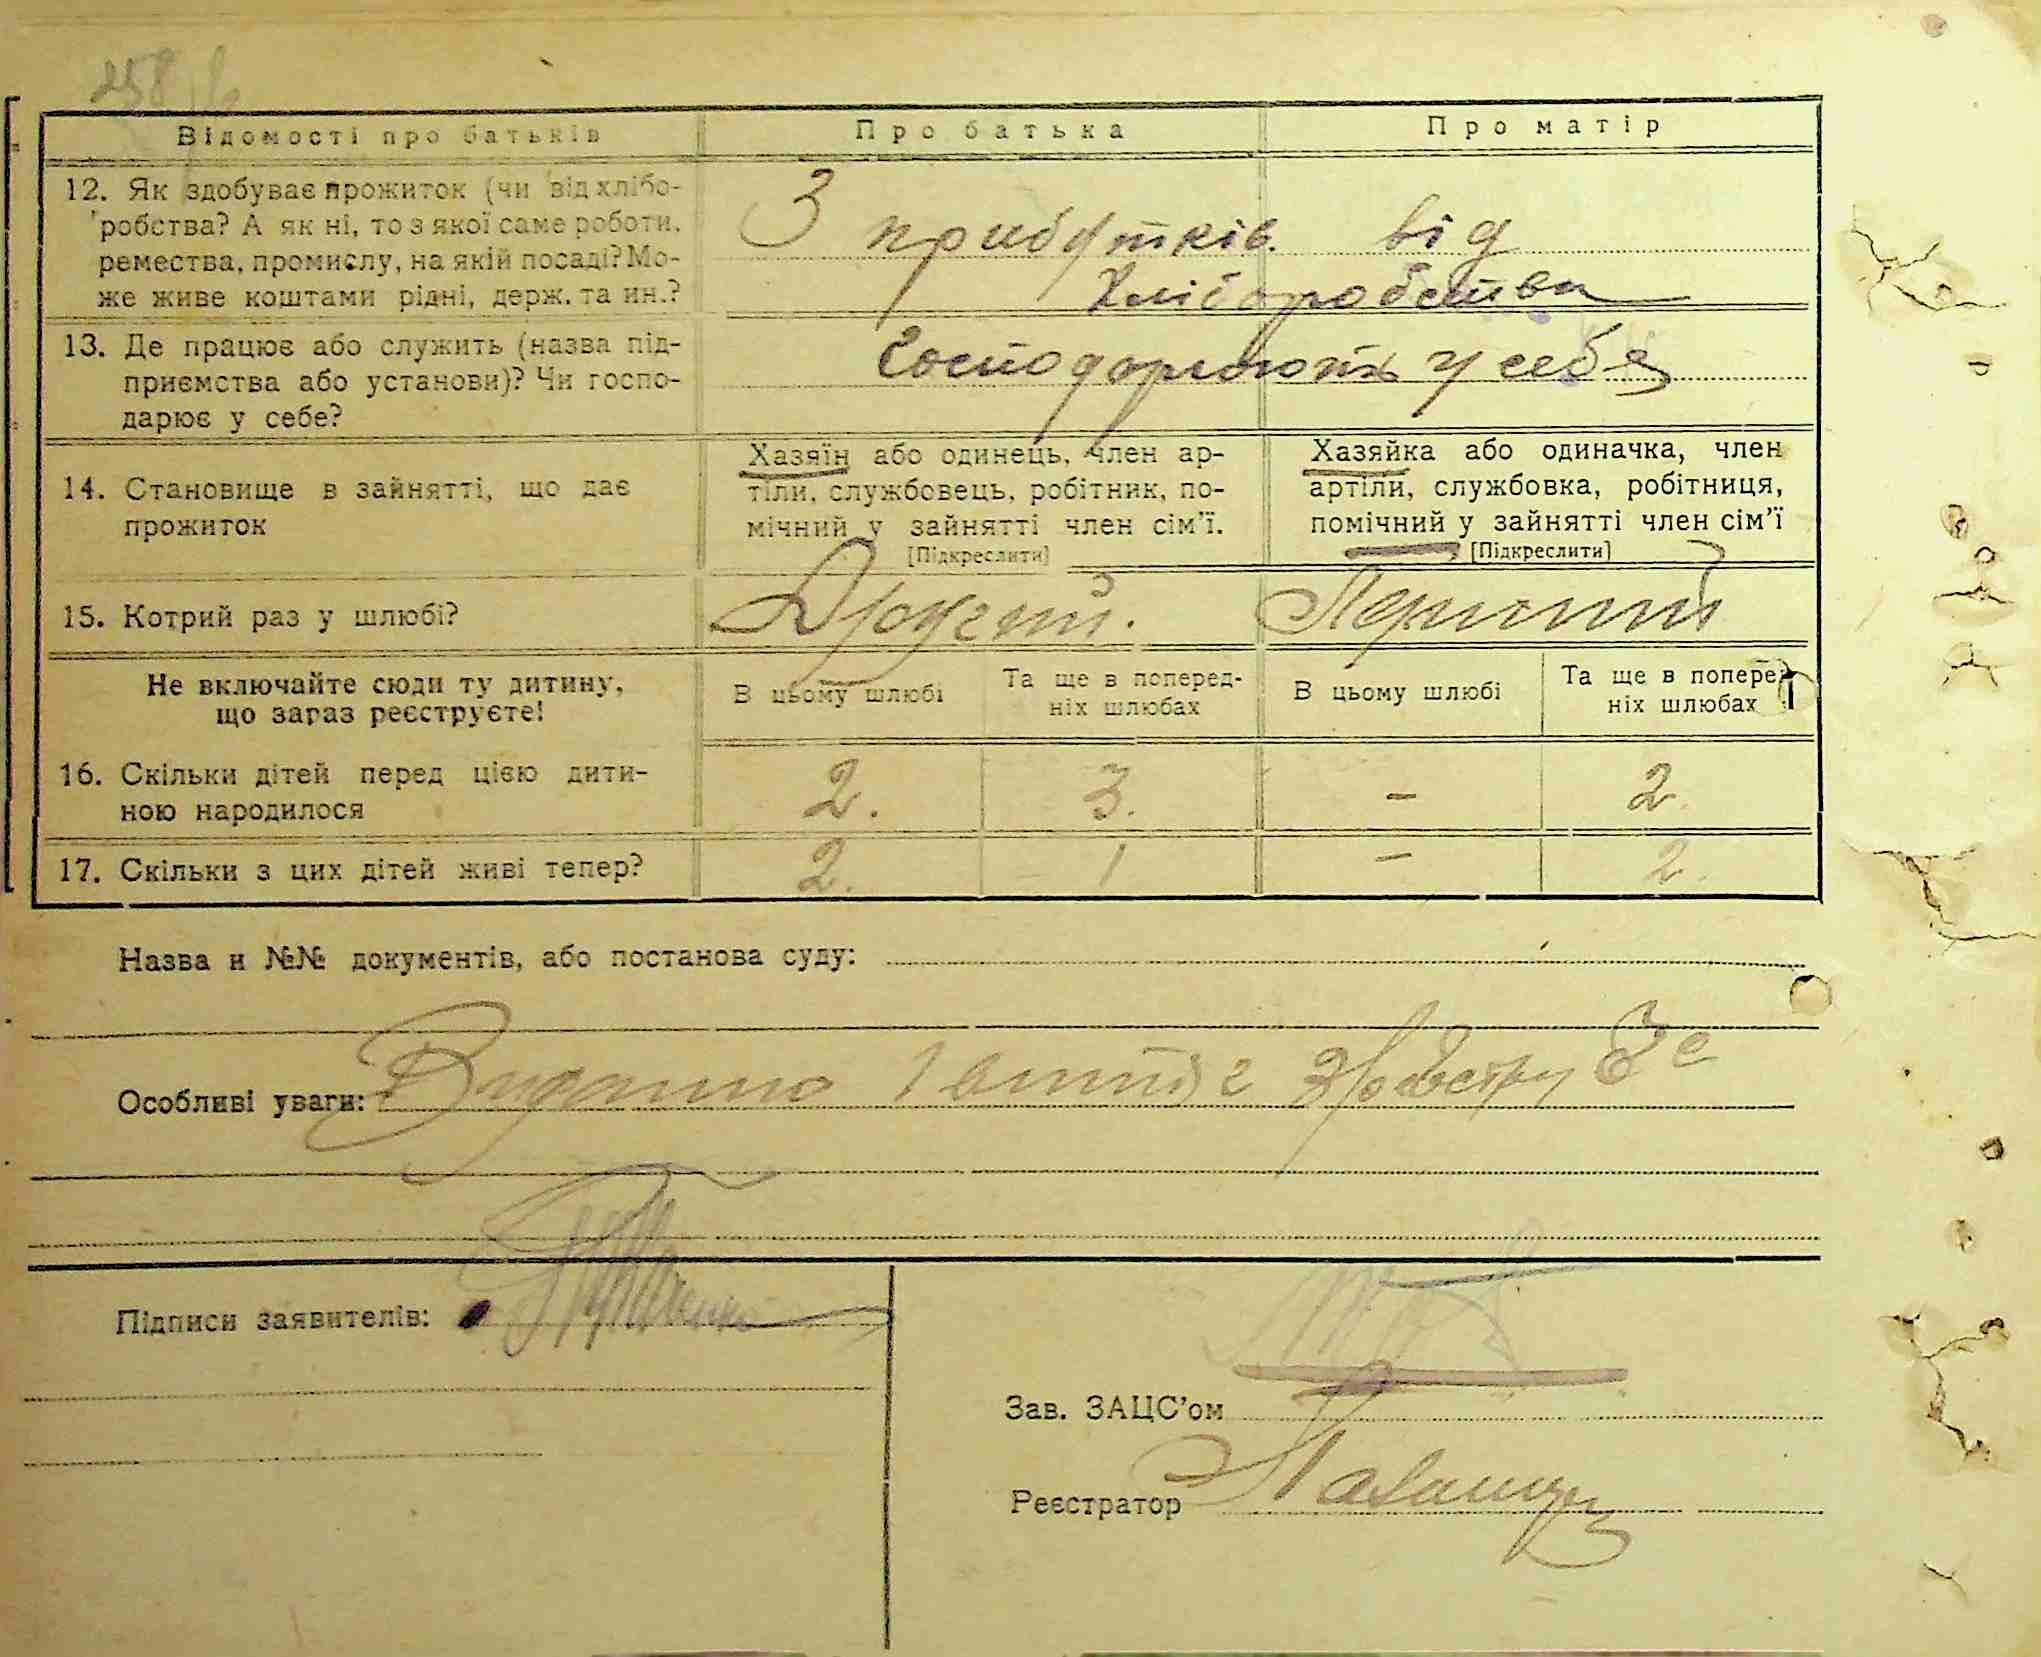 258
Відомості про батьків
Про батька
Про матір
12. Як здобуває прожиток (чи від хлібо-
робства? А як ні, то з якої саме роботи,
ремества, промислу, на якій посаді? Мо-
же живе коштами рідні, держ. та ин.?
З прибутків від
хліборобства
13. Де працює або служить (назва під-
приємства або установи)? Чи госпо-
дарює у себе?
Господарюють у себе
14. Становище в зайнятті, що дає
прожиток
Хазяїн або одинець, член ар-
тіли, службовець, робітник, по-
мічний у зайнятті член сім'ї.
[Підкреслити]
Хазяйка або одиначка, член
артіли, службовка, робітниця,
помічний у зайнятті член сім'ї
[Підкреслити]
15. Котрий раз у шлюбі?
Другий.
Перший
Не включайте сюди ту дитину,
що зараз реєструєте!
В цьому шлюбі
Та ще в поперед-
ніх шлюбах
В цьому шлюбі
Та ще в поперед-
ніх шлюбах
16. Скільки дітей перед цією дити-
ною народилося
2.
3.
-
2.
17. Скільки з цих дітей живі тепер?
2.
1
-
2.
Назва и №№ документів, або постанова суду:
Особливі уваги: Видано 1
Підписи заявителів:
Зав. ЗАЦС'ом
Реєстратор